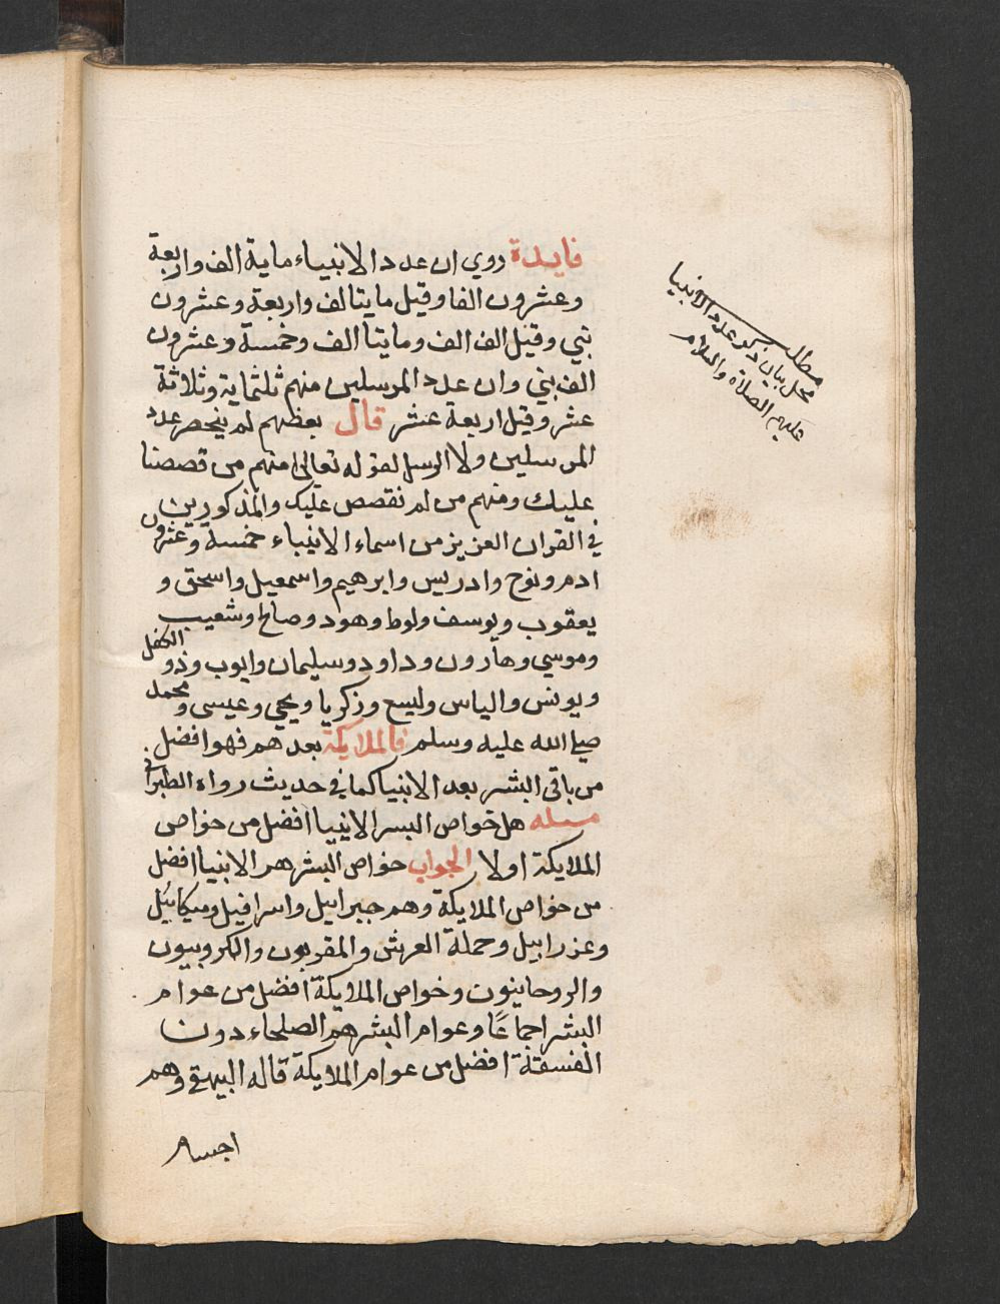 فايدة روي ان عدد الانبياء ماية الف واربعة
وعشرون الفا وقيل مايتا الف واربعة وعشرون
نبي وقيل الف الف ومايتا الف وخمسة وعشرون
الف نبي وان عدد المرسلين منهم ثلثماية وثلاثة
عشر وقيل اربعة عشر قال بعظهم لم ينحصر عدد
المرسلين ولا الرسل لقوله تعالى منهم من قصصنا
عليك ومنهم من لم نقصص عليك والمذكورين
في القران العزيز من اسماء الانبياء خمسة وعشرون
ادم ونوح وادريس وابرهيم واسمعيل واسحق و
يعقوب ويوسف ولوط وهود وصالح وشعيب
وموسي وهارون وداود وسليمان وايوب وذو الكفل
ويونس والياس وليسع وزكريا ويحي وعيسى ومحمد
صلى الله عليه وسلم فالملايكة بعدهم فهوافضل
من باقى البشر بعد الانبيا كما في حديث رواه الطبراني
مسله هل خواص البسر الانبيا افضل من خواص
الملايكة اولا الجواب خواص البشر هم الانبيا افضل
من خواص الملايكة وهم جبرايل واسرافيل وميكائيل
وعزرابيل وحملة العرش والمقربون والكروبيون
والروحانيون وخواص الملايكة افضل من عوام
البشر اجماعًا وعوام البشر هم الصلحاء دون
الفسقة افضل من عوام الملايكة قاله البيهقي وهم
اجسام
مطلب
محل بيان ذكر عدد الانبيا
عليهم الصلاة والسلام